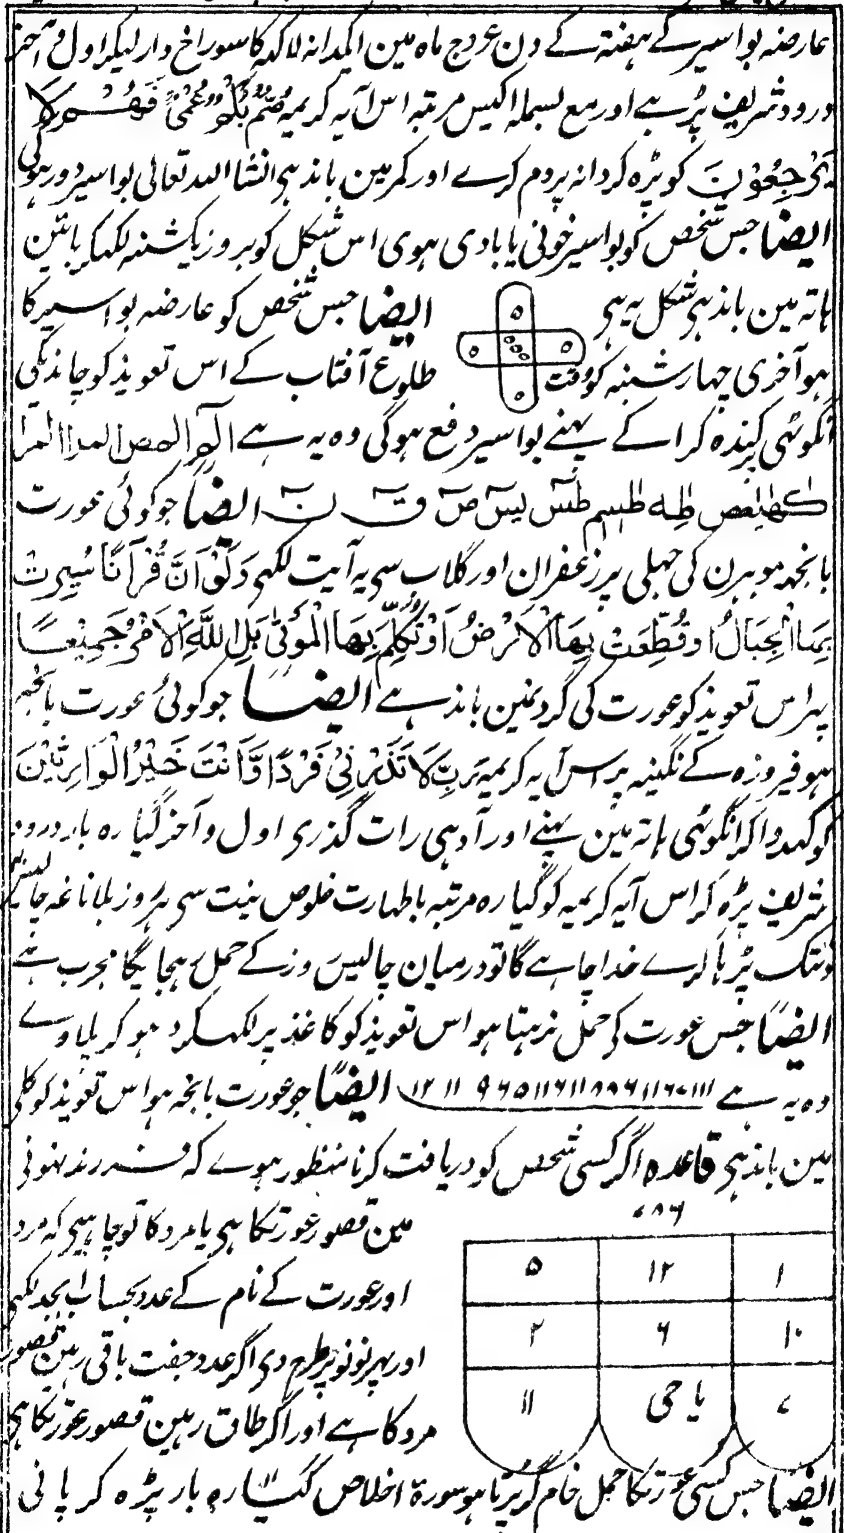 عارضہ بواسیر کے ہفتہ کے دن عروج ماہ مین ایکدانہ لاکہہ کا سوراخ دار لیکر اول و آخر
درود شریف پڑہے اور مع بسملہ اکیس مرتبہ اس آیہ کریمہ صُمٌّ بُكْمٌ عُمْيٌ فَهُمْ لَا
يَرْجِعُوْنَ کو پڑہ کر دانہ پر دم کرے اور کمر مین باندہی انشا اللہ تعالی بواسیر دور ہوگی
ایضا جس شخص کو بواسیر خونی یا بادی ہوی اس شکل کو بروز یکشنبہ لکہکر بائین
ہاتہ مین باندہی شکل یہ ہی ایضا جس شخص کو عارضہ بواسیر کا
ہو آخری چہار شنبہ کو وقت طلوع آفتاب کے اس تعویذ کو چاندیکی
انگوٹہی پر کندہ کرا کے پہنے بواسیر دفع ہوگی وہ یہ ہے الٓمٓ المص المرا المرا
كهيعص طه طسم طس يس ص ق ن ایضا جو کوئی عورت
بانجہہ ہو ہرن کی جہلی پر زعفران اور گلاب سی یہ آیت لکہی وَلَوْ اَنَّ قُرْاٰنًا سُيِّرَتْ
بِهَا الْجِبَالُ اَوْ قُطِّعَتْ بِهَا الْاَرْضُ اَوْ كُلِّمَ بِهَا الْمَوْتٰى بَلْ لِلّٰهِ الْاَمْرُ جَمِيْعًا
پہر اس تعویذ کو عورت کی گردنین باندہے ایضا جو کوئی عورت بانجہہ
ہو فیروزہ کے نگینہ پر اس آیہ کریمہ رَبِّ لَا تَذَرْنِيْ فَرْدًا وَّاَنْتَ خَيْرُ الْوَارِثِيْنَ
کو کہدوا کر انگوٹہی ہاتہ مین پہنے اور آدہی رات گذری اول و آخر گیارہ بار درود
شریف پڑہ کر اس آیہ کریمہ کو گیارہ مرتبہ با طہارت خلوص نیت سی ہر روز بلا ناغہ چالیس
دنتک پڑہا کرے خدا چاہے گا تو درمیان چالیس روز کے حمل رہجائیگا مجرب ہے
ایضًا جس عورت کی حمل نرہتا ہو اس تعویذ کو کاغذ پر لکہہ کر دہو کر پلاوے
وہ یہ ہے ایضًا جو عورت بانجہ ہو اس تعویذ کو گلی
مین باندہی قاعدہ اگر کسی شخص کو دریافت کرنا منظور ہوے کہ فرزند نہونی
۷۸۶
مین قصور عورتکا ہی یا مرد کا تو چاہیی کہ مرد
۱ ۱۲ ۵
اور عورت کے نام کے عدد بحساب ابجد لکہی
۱۰ ۶ ۲
اور پہر نو نو پر طرح دی اگر عدد جفت باقی رہین قصور
۷ یا حی ۱۱
مرد کا ہے اور اگر طاق رہین قصور عورتکا ہی
ایضًا جس کسی عورتکا حمل خام گر پڑتا ہو سورۃ اخلاص گیارہ بار پڑہ کر پانی